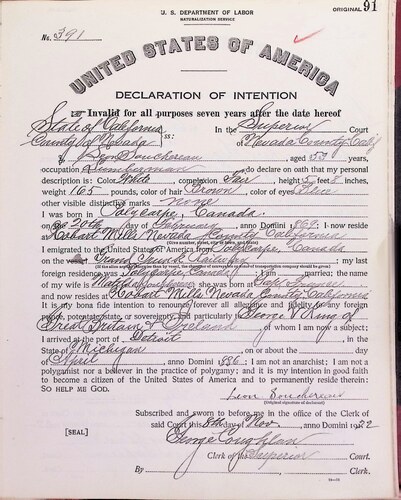 U. S. DEPARTMENT OF LABOR
NATURALIZATION SERVICE
ORIGINAL 91
No. 391
UNITED STATES OF AMERICA
DECLARATION OF INTENTION
Invalid for all purposes seven years after the date hereof
State of California
County of Nevada ss:
In the Superior Court
Nevada County Calif
I, Leon Souchereau, aged 53 years,
occupation Lumberman, do declare on oath that my personal
description is: Color White, complexion Fair, height 5 feet 8 inches,
weight 165 pounds, color of hair Brown, color of eyes Blue
other visible distinctive marks none
I was born in Polycarpe, Canada
on the 20th day of February, anno Domini 1869; I now reside
at Hobart Mills Nevada County California
I emigrated to the United States of America from Polycarpe, Canada
on the Grand Trunk Railway; my last
foreign residence was Polycarpe Canada; I am married; the name
of my wife is Matilda; she was born at
and now resides at Hobart Mills, Nevada County, California
It is my bona fide intention to renounce forever all allegiance and fidelity to any foreign
prince, potentate, state, or sovereignty, and particularly to George V King of
Great Britain & Ireland, of whom I am now a subject;
I arrived at the port of Detroit, in the
State of Michigan, on or about the day
of April, anno Domini 1886; I am not an anarchist; I am not a
polygamist nor a believer in the practice of polygamy; and it is my intention in good faith
to become a citizen of the United States of America and to permanently reside therein:
SO HELP ME GOD.
Leon Souchereau
(Original signature of declarant)
Subscribed and sworn to before me in the office of the Clerk of
said Court this 8th day of Nov, anno Domini 1922
[SEAL]
George Coughlan
Clerk of the Superior Court.
By , Clerk.